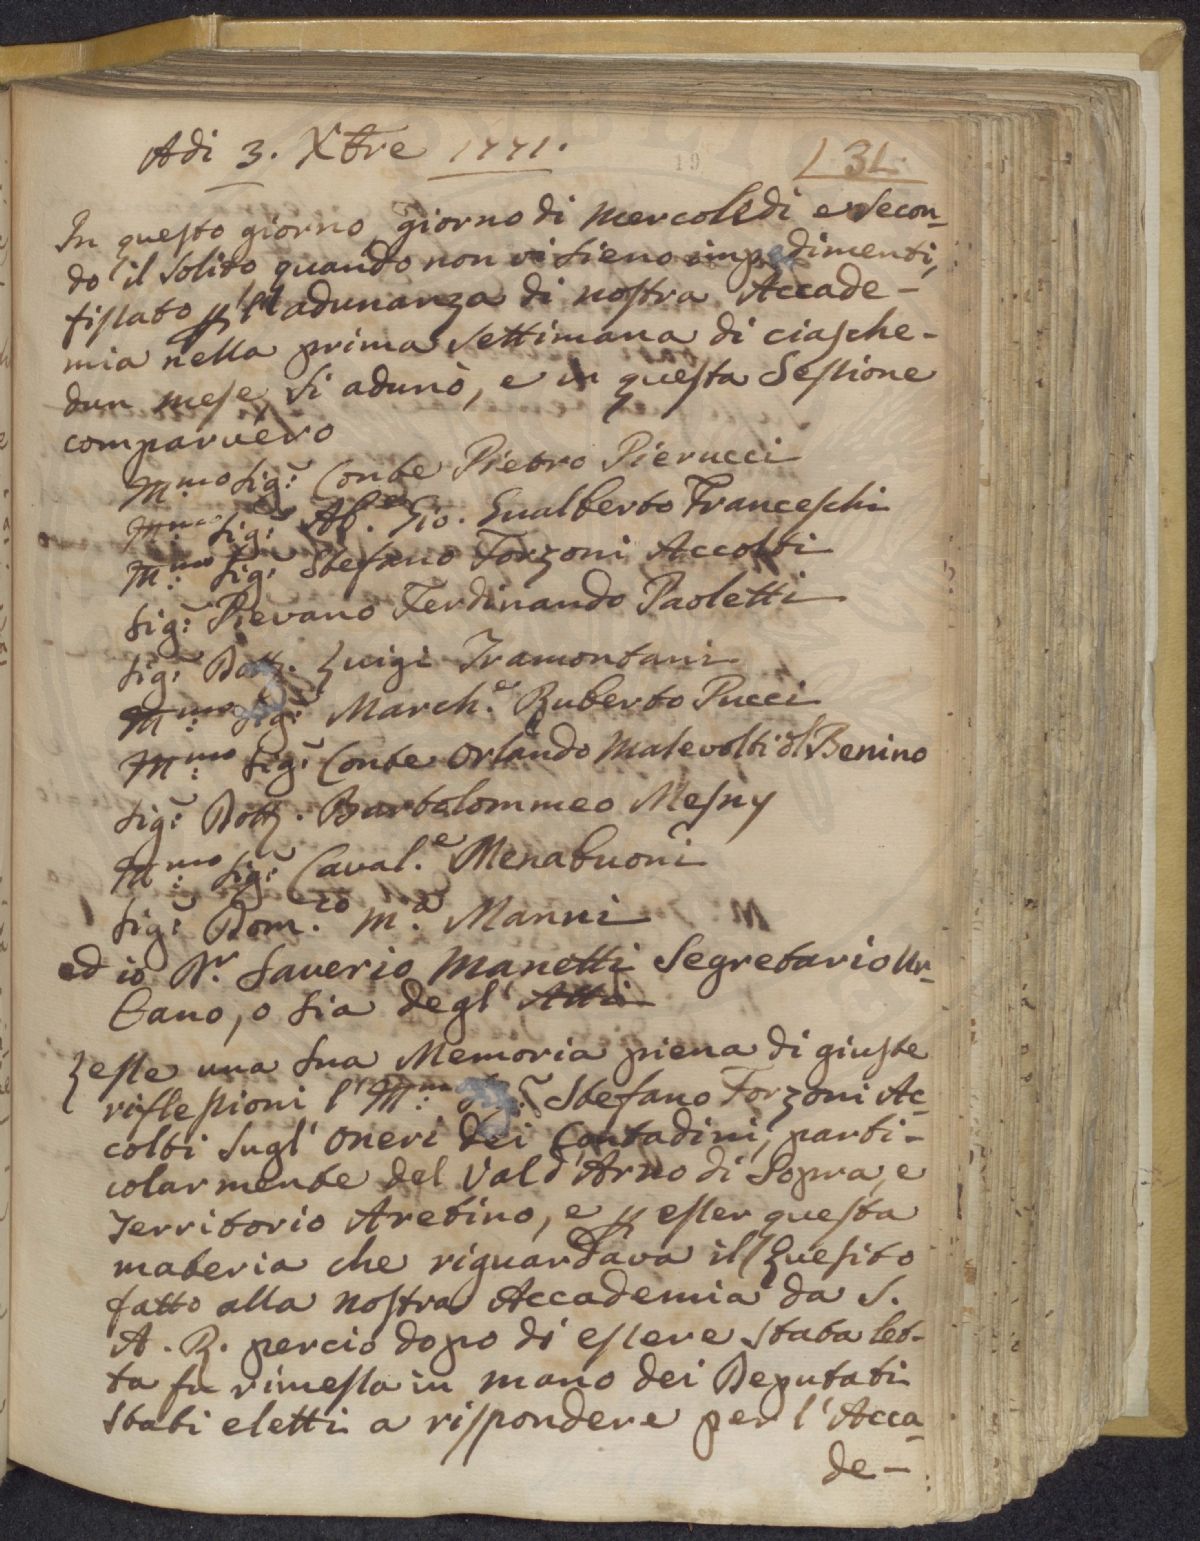 Adi 3. Xbre 1771.
131.
19
In questo giorno, giorno di Mercoledi e secon-
do il solito quando non vi sieno impedimenti,
fissato p l'adunanza di nostra Accade-
mia nella prima settimana di ciasche-
dun mese, si adunò, e in questa Sessione
comparvero
Ill:mo Sig: Conte Pietro Pierucci
Ill:mo Sig: Ab.e Gio. Gualberto Franceschi
Ill:mo Sig: Stefano Forzoni Accolti
Sig: Pievano Ferdinando Paoletti
Sig: Dott. Luigi Tramontani
Ill:mo Sig: March.e Ruberto Pucci
Ill:mo Sig: Conte Orlando Malevolti d'l Benino
Sig: Dott. Bartolommeo Mesny
Ill:mo Sig: Caval.e Menabuoni
Sig: Dom.co M.a Manni
ed io Dr. Saverio Manetti Segretario Ur-
bano, o sia degl' Atti
Lesse una sua Memoria piena di giuste
riflessioni l' Ill:mo Sig: Stefano Forzoni Ac-
colti sugl' oneri dei Contadini, parti-
colarmente del Val d'Arno di Sopra, e
Territorio Aretino, e p esser questa
materia che riguardava il Quesito
fatto alla nostra Accademia da S.
A. R. perciò dopo di essere stata let-
ta fu rimessa in mano dei Deputati
stati eletti a rispondere per l'Acca-
de-